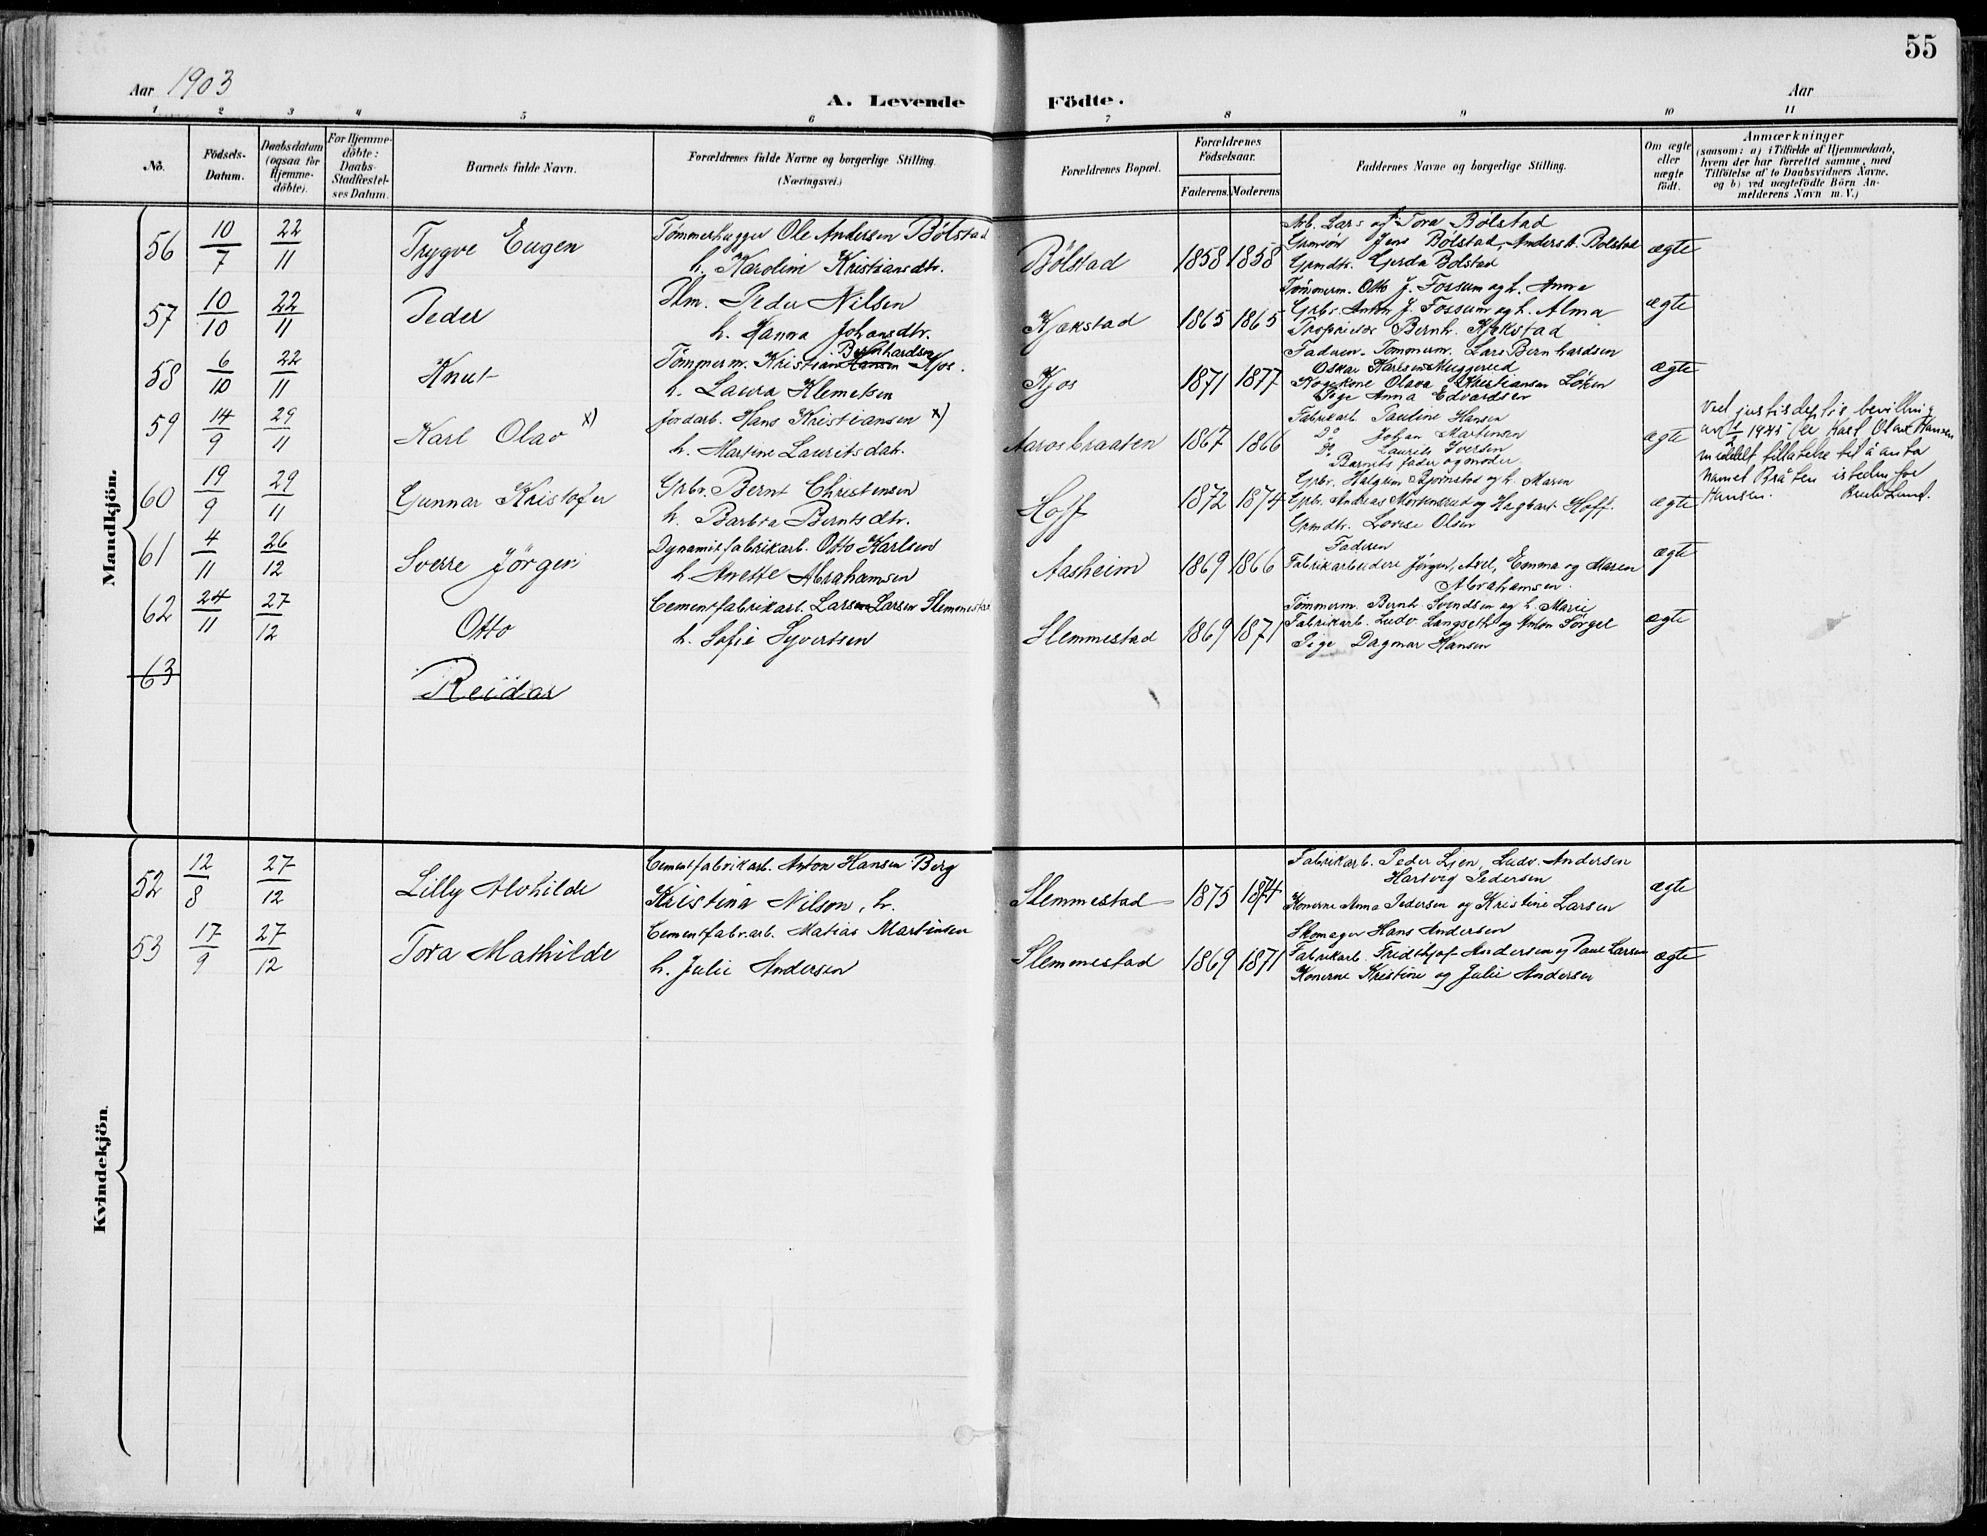 55
Aar 1903
A. Levende Födte.
Aar
1 2 3 4 5 6 7 8 9 10 11
No.
Födsels-Datum.
Daabsdatum (ogsaa for Hjemme-döbte).
For Hjemme-döbte: Daabs-Stadfæstel-ses Datum.
Barnets fulde Navn.
Forældrenes fulde Navne og borgerlige Stilling. (Næringsvei.)
Forældrenes Bopæl.
Forældrenes Födselsaar.
Faderens. Moderens.
Faddernes Navne og borgerlige Stilling.
Om ægte eller uægte födt.
Anmærkninger
(saasom: a) i Tilfælde af Hjemmedaab,
hvem der har forrettet samme, med
Tilföielse af to Daabsvidners Navne,
og b) ved uægtefödte Börn An-
melderens Navn m. V.)
Mandkjön.
56 10/7 22/11 Trygve Eugen
Tømmerhugger Ole Andersen Bølstad
h. Karoline Kristiansdtr.
Bölstad 1858 1858
Arb. Lars og h. Tora Bølstad
Grmsøn Jens Bølstad, Anders A. Bolstad
Grmdtr. Gerda Bolstad
ægte
57 10/10 22/11 Peder
Plm. Peder Nilsen
h. Hanna Johansdtr.
Kjækstad 1865 1865
Tømmerm. Otto J. Fossum og h. Anna
Grbr. Anton J. Fossum og h. Alma
Proprietær Bernh. Kjækstad
ægte
58 6/10 22/11 Knut
Tømmerm. Kristian Hansen Bernhardsen Kjos.
h. Laura Klemetsen
Kjos 1871 1877
Faderen. Tømmerm. Lars Bernhardsen
Oskar Karlsen Muggerud
Kogekone Olava Kristiansen Løken
Pige Anna Edvardsen
ægte
59 14/9 29/11 Karl Olav x)
Jordarb. Hans Kristiansen x)
h. Martine Lauritsdatr.
Aarosbraaten 1867 1866
Fabrikarb. Pauline Hansen
Do Johan Martinsen
Do Laurits Iversen
Barnets fader og moder
ægte
Ved justisdep'ts bevilling
av 1/2 1945 er Karl Olav Hansen
meddelt tillatelse til å anta
navnet Bråten istedenfor
Hansen. Lund.
60 19/9 29/11 Gunnar Kristofer
Grbr. Bernt Christensen
h. Barbra Berntsdtr.
Hoff 1872 1874
Grbr. Halgrim Bjørnstad og h. Maren
Grbr. Andreas Mortensrud og Hagbart Hoff.
Grmdtr. Lovise Olsen
ægte
61 4/11 26/12 Sverre Jörgen
Dynamitfabrikarb. Otto Karlsen
h. Anette Abrahamsen
Aasheim 1869 1866
Faderen
Fabrikarbeidere Jørgen, Axel, Emma og Maren
Abrahamsen.
ægte
62 24/11 27/12 Otto
Cementfabrikarb. Larsen Larsen Slemmestad
h. Sofie Syvertsen
Slemmestad 1869 1871
Tømmerm. Bernh. Svendsen og h. Marie
Fabrikarb. Ludv. Langseth og Anton Sørgel
Pige Dagmar Hansen
ægte
63 Reidar
Kvindekjön.
52 12/8 27/12 Lilly Alvhilde
Cementfabrikarb. Anton Hansen Berg
Kristina Nilson, h.
Slemmestad 1875 1874
Fabrikarb. Peder Lien, Ludv. Andersen
Hartvig Pedersen
Konerne Anna Pedersen og Kristine Larsen
ægte
53 17/9 27/12 Tora Mathilde
Cementfabr.arb. Matias Martinsen
h. Julie Andersen
Slemmestad 1869 1871
Skomager Hans Andersen
Fabrikarb. Fridthjof Andersen og Paul Larsen
Konerne Kristine og Julie Andersen
ægte